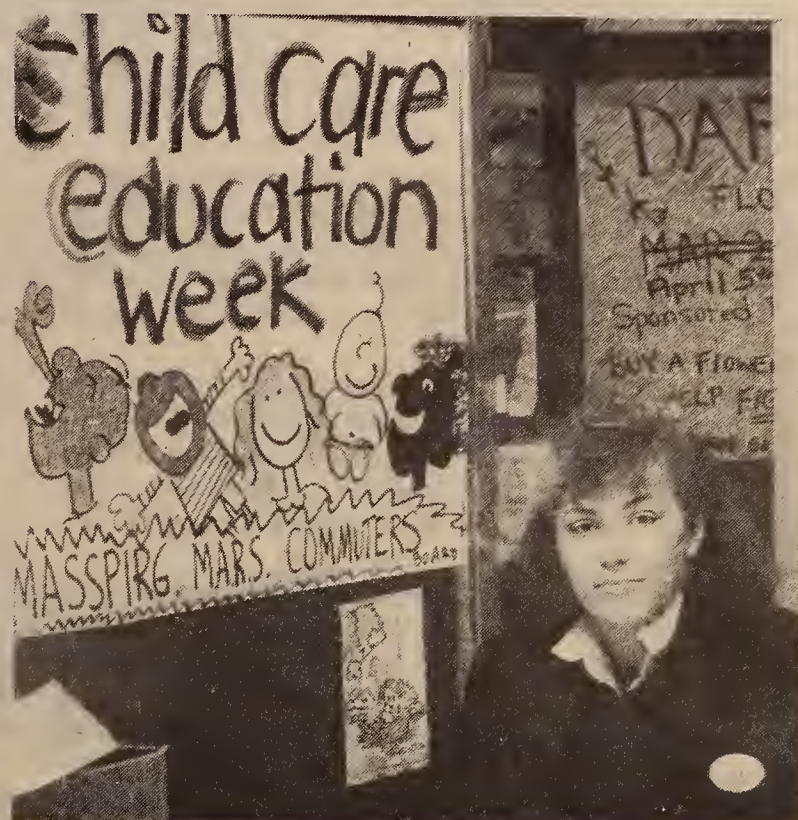 Child Care
education
week
MASSPIRG. MARS. COMMUTERS
BOARD
DAF
FLO
MAR 2
April 5th
Sponsored
BUY A FLOWE
HELP FIG